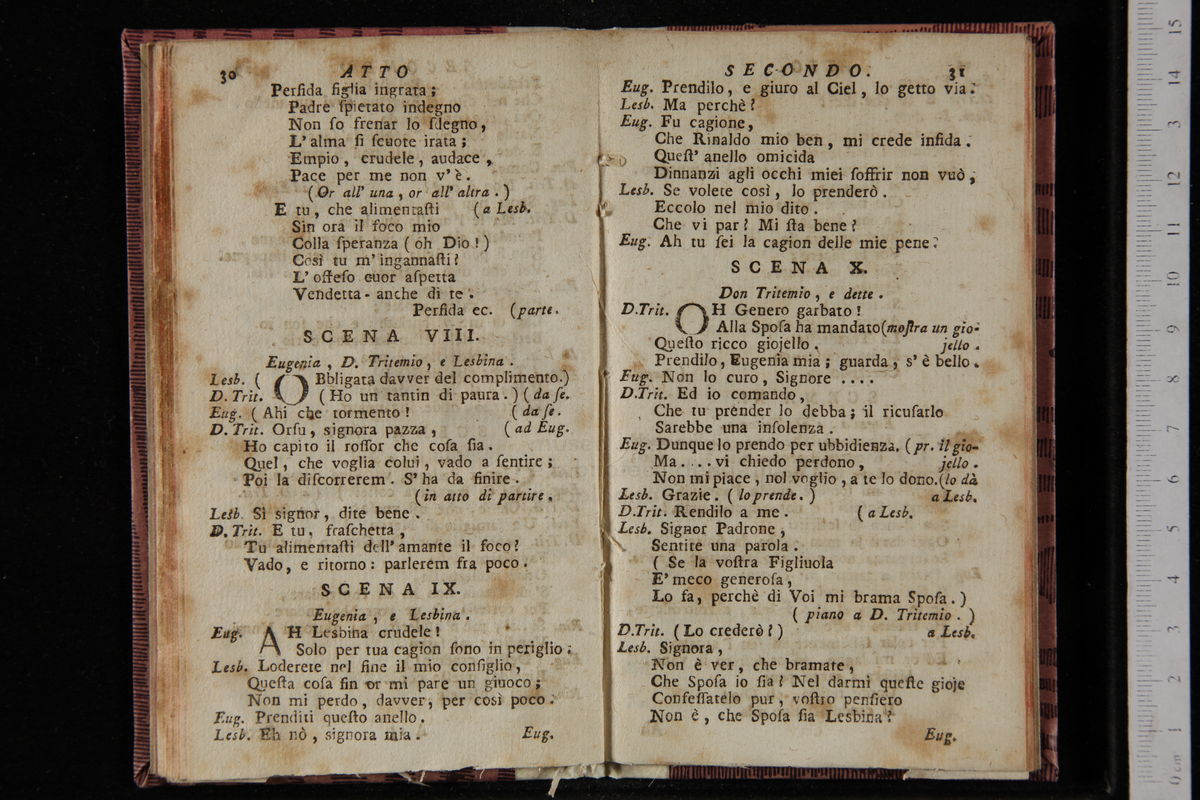 30 ATTO
Perfida figlia ingrata;
Padre ſpietato indegno
Non ſo frenar lo ſdegno,
L'alma ſi ſcuote irata;
Empio, crudele, audace,
Pace per me non v'è.
(Or all' una, or all' altra.)
E tu, che alimentaſti (a Lesb.
Sin ora il foco mio
Colla ſperanza (oh Dio!)
Così tu m'ingannaſti?
L'offeſo cuor aſpetta
Vendetta anche di te.
Perfida ec. (parte.
SCENA VIII.
Eugenia, D. Tritemio, e Lesbina.
Lesb. (OBbligata davver del complimento.)
D. Trit. (Ho un tantin di paura.) (da ſe.
Eug. (Ahi che tormento! (da ſe.
D. Trit. Orſu, signora pazza, (ad Eug.
Ho capito il roſſor che coſa ſia.
Quel, che voglia colui, vado a ſentire;
Poi la diſcorrerem. S'ha da finire.
(in atto di partire.
Lesb. Sì signor, dite bene.
D. Trit. E tu, fraſchetta,
Tu alimentaſti dell'amante il foco?
Vado, e ritorno: parlerem fra poco.
SCENA IX.
Eugenia, e Lesbina.
Eug. AH Lesbina crudele!
Solo per tua cagion ſono in periglio;
Lesb. Loderete nel fine il mio conſiglio,
Queſta coſa fin or mi pare un giuoco;
Non mi perdo, davver, per così poco.
Eug. Prenditi queſto anello.
Lesb. Eh nò, signora mia. Eug.
SECONDO. 31
Eug. Prendilo, e giuro al Ciel, lo getto via.
Lesb. Ma perchè?
Eug. Fu cagione,
Che Rinaldo mio ben, mi crede infida.
Queſt' anello omicida
Dinnanzi agli occhi miei ſoffrir non vuò,
Lesb. Se volete così, lo prenderò.
Eccolo nel mio dito.
Che vi par? Mi ſta bene?
Eug. Ah tu ſei la cagion delle mie pene.
SCENA X.
Don Tritemio, e dette.
D.Trit. OH Genero garbato!
Alla Spoſa ha mandato(moſtra un gio-
Queſto ricco giojello. jello.
Prendilo, Eugenia mia; guarda, s'è bello.
Eug. Non lo curo, Signore ....
D.Trit. Ed io comando,
Che tu prender lo debba; il ricuſarlo
Sarebbe una inſolenza.
Eug. Dunque lo prendo per ubbidienza. (pr. il gio-
Ma.... vi chiedo perdono, jello.
Non mi piace, nol voglio, a te lo dono.(lo dà
Lesb. Grazie. (lo prende.) a Lesb.
D.Trit. Rendilo a me. (a Lesb.
Lesb. Signor Padrone,
Sentite una parola.
(Se la voſtra Figliuola
E' meco generoſa,
Lo fa, perchè di Voi mi brama Spoſa.)
(piano a D. Tritemio.)
D.Trit. (Lo crederò?) a Lesb.
Lesb. Signora,
Non è ver, che bramate,
Che Spoſa io ſia? Nel darmi queſte gioje
Confeſſatelo pur, voſtro penſiero
Non è, che Spoſa ſia Lesbina?
Eug.
0 cm 1 2 3 4 5 6 7 8 9 10 11 12 13 14 15